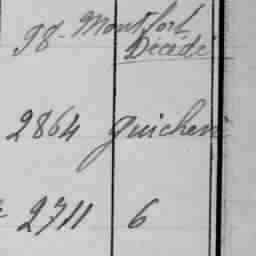 98- Montfort
Décédé
2864 guichen
2711 6